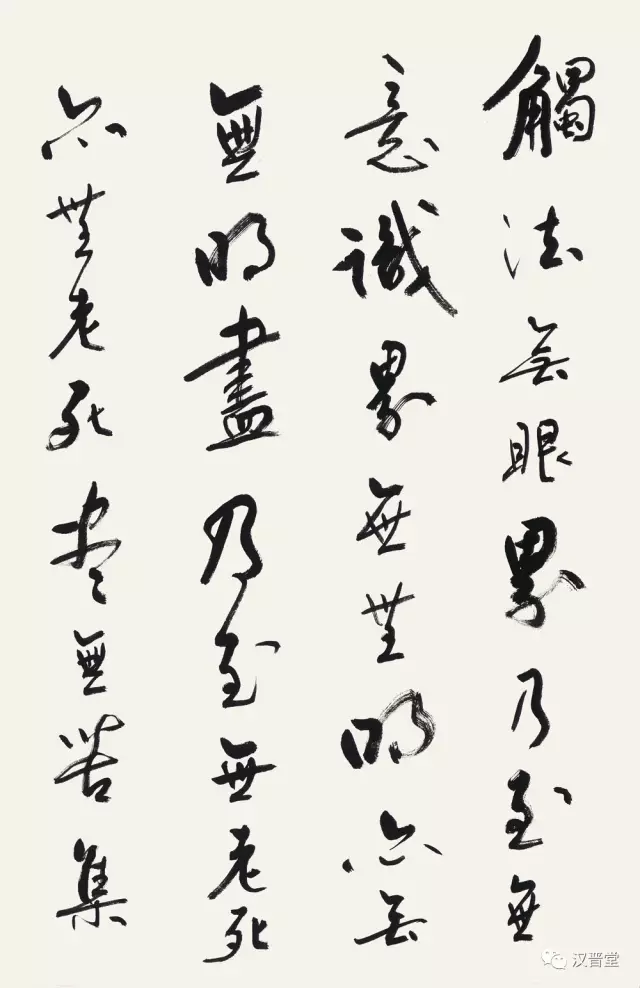 觸法無眼界乃至無
意識界無無明亦無
無明盡乃至無老死
亦無老死盡無苦集
汉晋堂